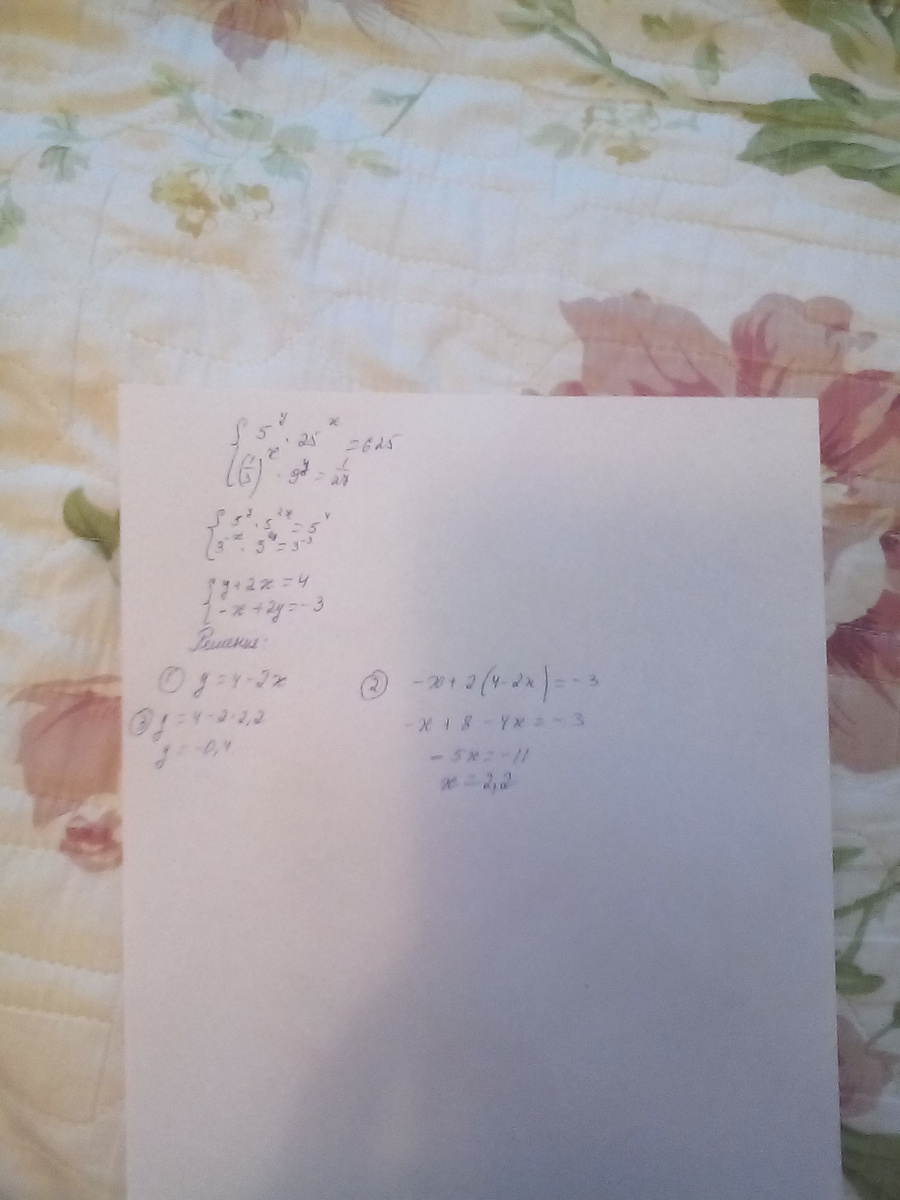 { 5^y · 25^x = 625
(1/3)^x · 9^y = 1/27
{ 5^y · 5^2x = 5^4
3^-x · 3^2y = 3^-3
{ y+2x=4
-x+2y=-3
Решение:
① y=4-2x
② -x+2(4-2x)=-3
-x+8-4x=-3
-5x=-11
x=2,2
③ y=4-2·2,2
y=-0,4